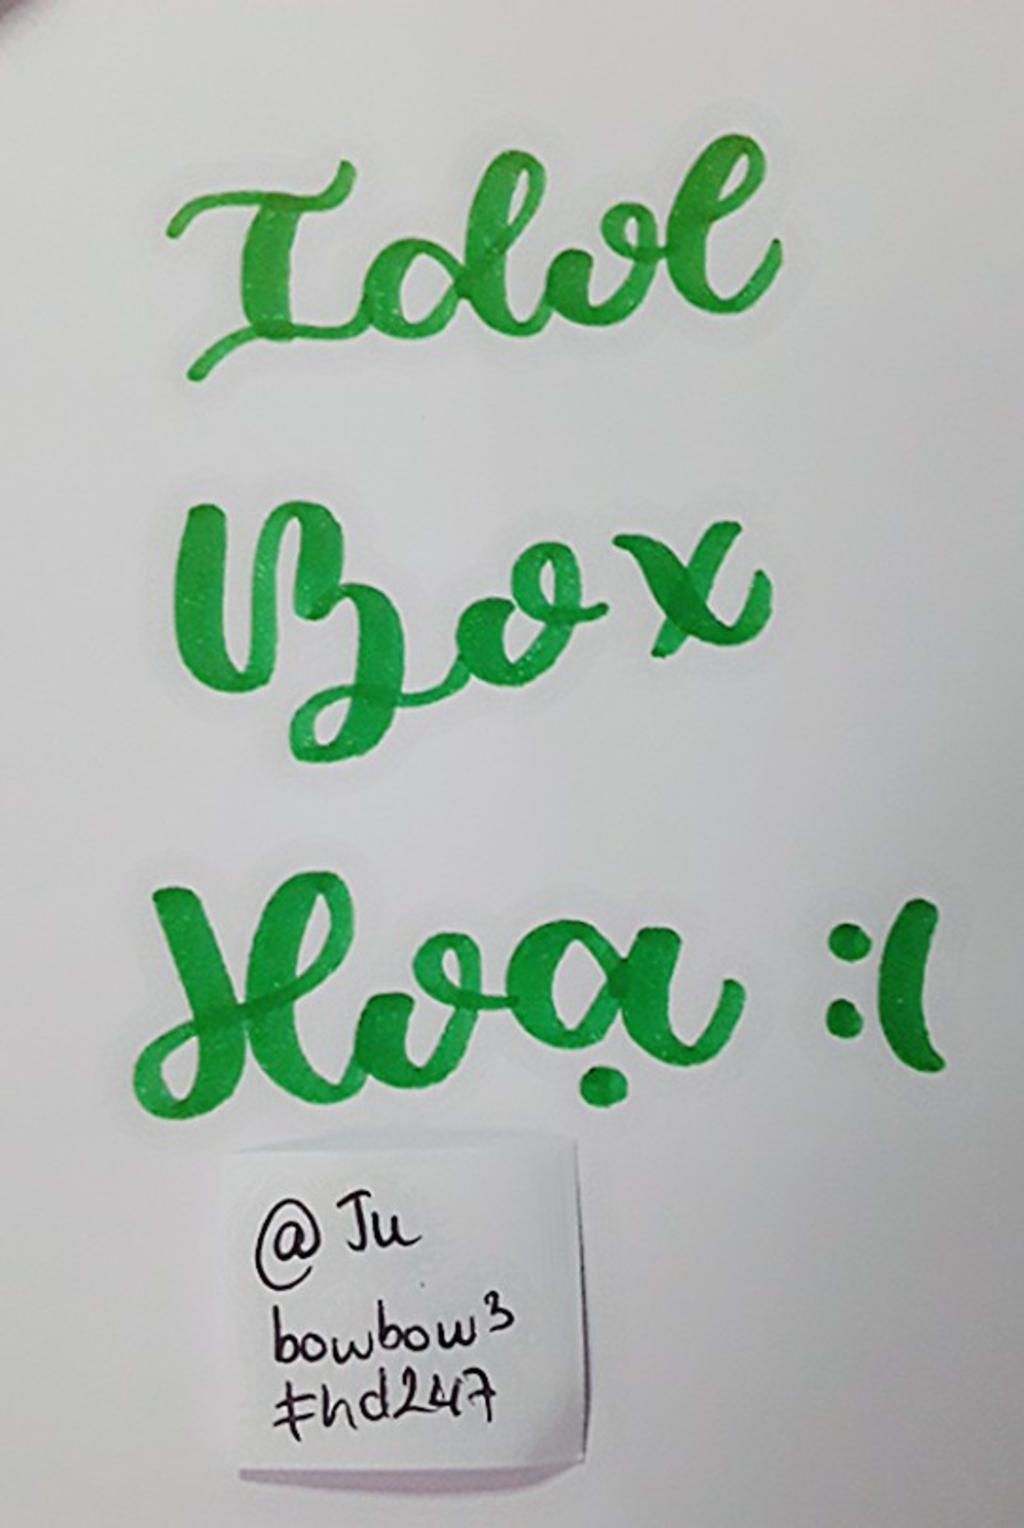 Idol
Box
Họa :(
@Ju
bowbow3
#hd247